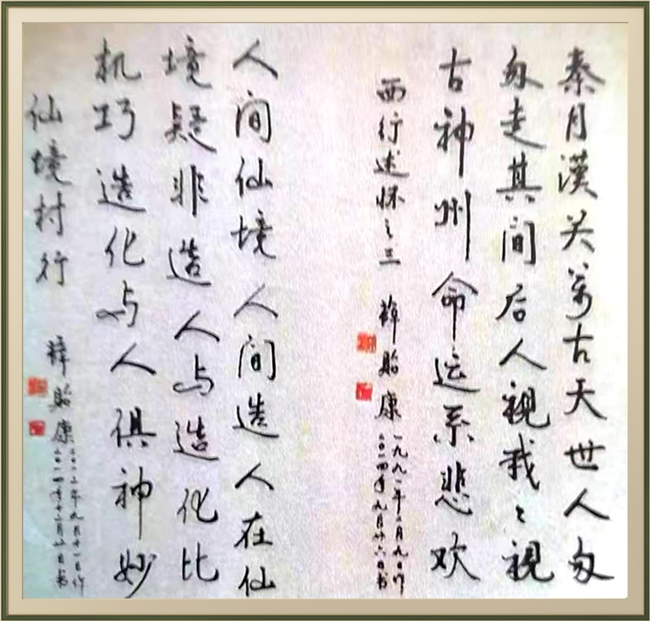 秦月漢关萬古天世人匆
匆走其间后人视我々视
古神州命运系悲欢
西行述怀之三 薛贻康
一九九一年二月九日作
二〇一四年九月廿六日书
人间仙境人间造人在仙
境疑非造人与造化比
机巧造化与人俱神妙
仙境村行 薛贻康
二〇一二年九月十一日作
二〇一四年十二月廿日书